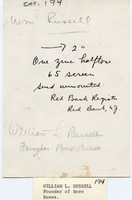 CAT. 199
Wm Russell
→ 2"
One zinc halftone
65 screen
Send unmounted
Red Bank Register
Red Bank, N.J.
William L. Russell
Founder
199
WILLIAM L. RUSSELL
Founder of Boro
Buses.